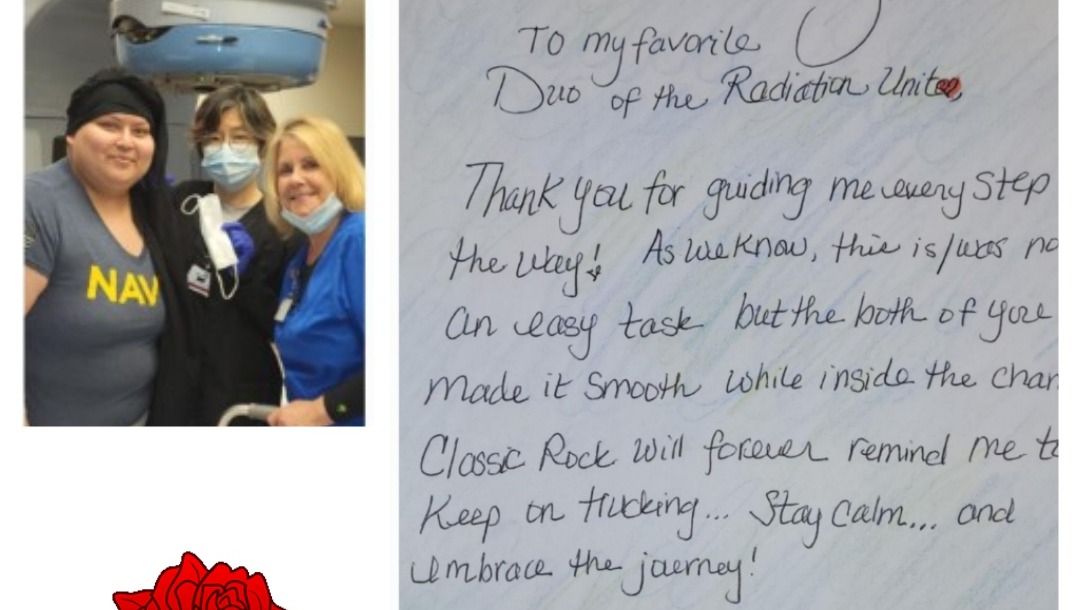 NAV
To my favorite
Duo of the Radiation Unit
Thank you for guiding me every step
the way! As we know, this is/was no
an easy task but the both of you
made it smooth while inside the cha
Classic Rock will forever remind me to
Keep on trucking... Stay calm... and
embrace the journey!